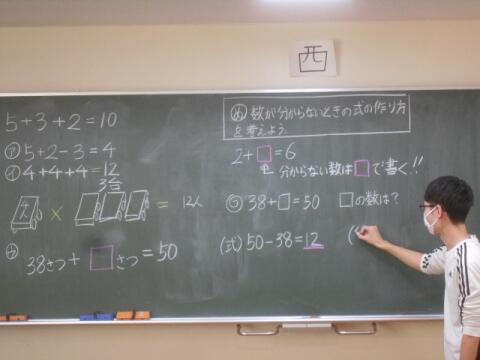 西
5+3+2=10
㋐5+2-3=4
㋑4+4+4=12
3台
× = 12人
38さつ+□さつ=50
め 数が分からないときの式の作り方
を考えよう。
2+□=6
分からない数は□で書く!!
38+□=50 □の数は?
(式)50-38=12 (